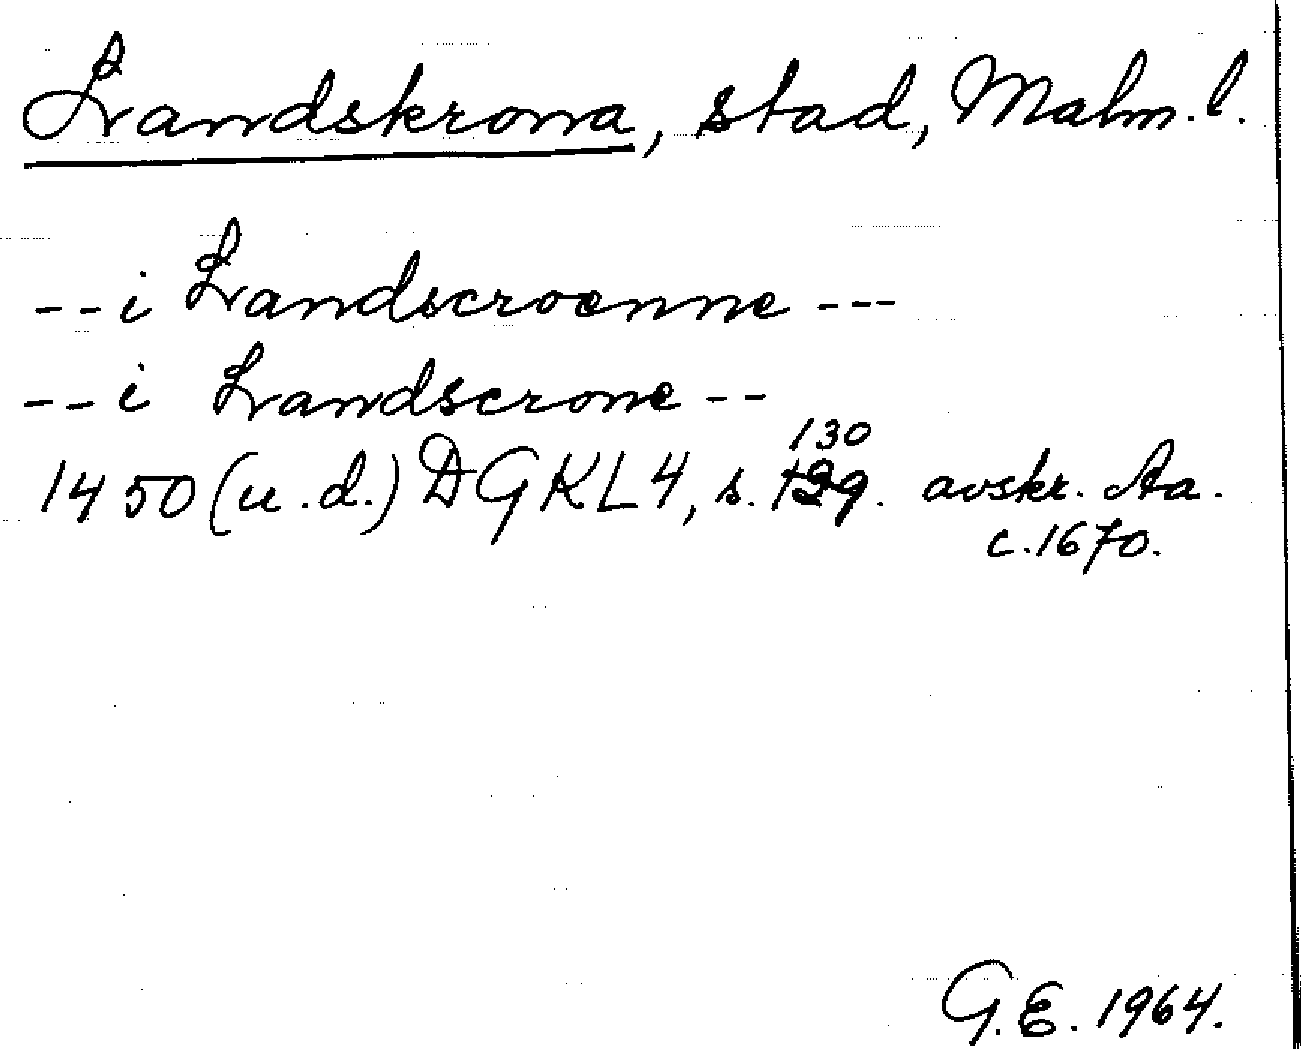 Landskrona, stad, Malm. l.
-- i Landscroenne ---
-- i Landscrone --
130
1450 (u.d.) DGKL4, s. 129. avskr. Aa.
c. 1670.
G.E. 1964.